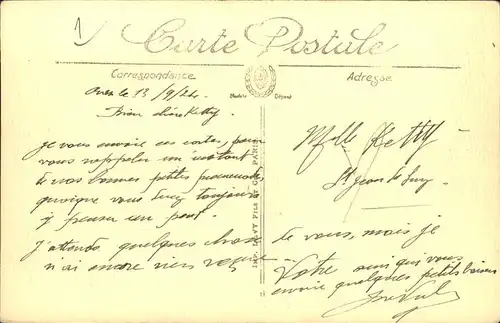 1
Carte Postale
Correspondance
Adresse
Modèle Déposé
le 13/9/24
Bien chère Ketty
Je vous envoie ces cartes, pour
vous rappeler un instant
de nos bonnes petites promenades,
quoique vous
y penser un peu.
J'attends quelques chose
n'ai encore rien reçu
IMP. LEVY FILS ET CIE PARIS
Mlle Ketty
St Jean de Luz
de vous, mais je
Votre ami qui vous
envoie quelques petits baisers